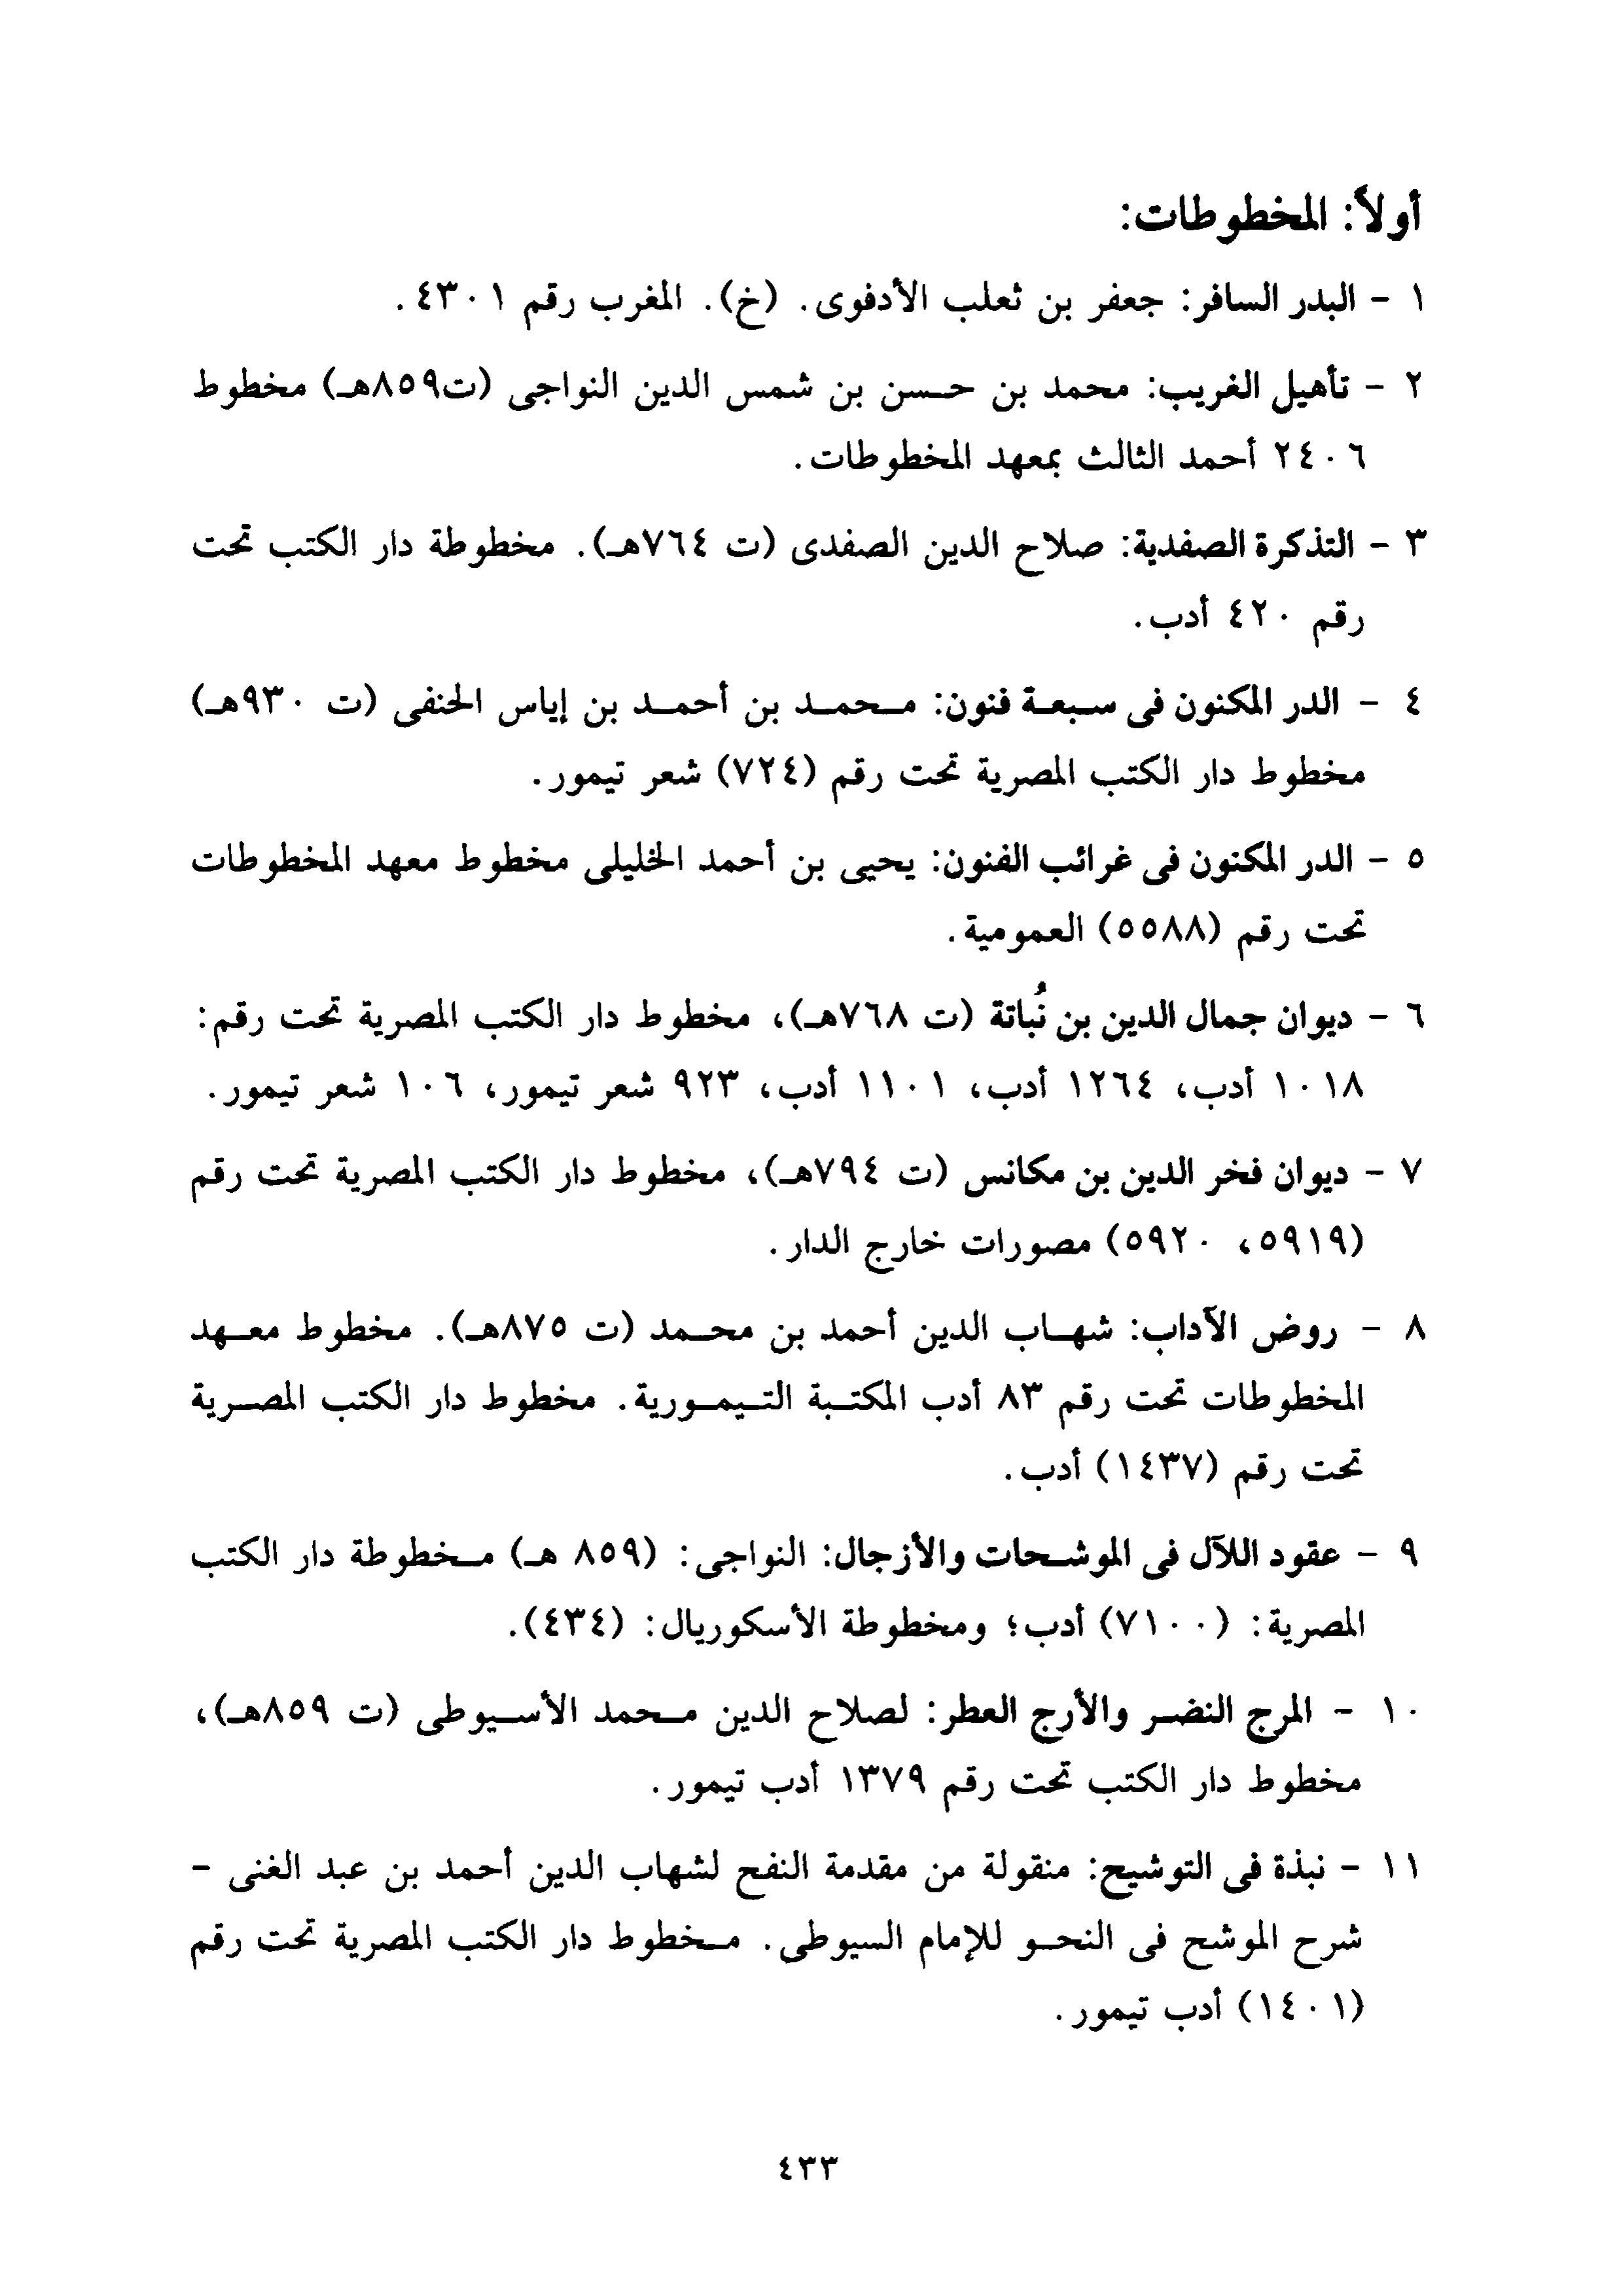 أولاً: المخطوطات:
١ - البدر السافر: جعفر بن ثعلب الأدفوى. (خ). المغرب رقم ٤٣٠١.
٢ - تأهيل الغريب: محمد بن حسن بن شمس الدين النواجى (ت٨٥٩هـ) مخطوط
٢٤٠٦ أحمد الثالث بمعهد المخطوطات.
٣ - التذكرة الصفدية: صلاح الدين الصفدى (ت ٧٦٤هـ). مخطوطة دار الكتب تحت
رقم ٤٢٠ أدب.
٤ - الدر المكنون فى سبعة فنون: محمد بن أحمد بن إياس الحنفى (ت ٩٣٠هـ)
مخطوط دار الكتب المصرية تحت رقم (٧٢٤) شعر تيمور.
٥ - الدر المكنون فى غرائب الفنون: يحيى بن أحمد الخليلى مخطوط معهد المخطوطات
تحت رقم (٥٥٨٨) العمومية.
٦ - ديوان جمال الدين بن نُباتة (ت ٧٦٨هـ)، مخطوط دار الكتب المصرية تحت رقم:
١٠١٨ أدب، ١٢٦٤ أدب، ١١٠١ أدب، ٩٢٣ شعر تيمور، ١٠٦ شعر تيمور.
٧ - ديوان فخر الدين بن مكانس (ت ٧٩٤هـ)، مخطوط دار الكتب المصرية تحت رقم
(٥٩١٩، ٥٩٢٠) مصورات خارج الدار.
٨ - روض الآداب: شهاب الدين أحمد بن محمد (ت ٨٧٥هـ). مخطوط معهد
المخطوطات تحت رقم ٨٣ أدب المكتبة التيمورية. مخطوط دار الكتب المصرية
تحت رقم (١٤٣٧) أدب.
٩ - عقود اللآل فى الموشحات والأزجال: النواجى: (٨٥٩ هـ) مخطوطة دار الكتب
المصرية: (٧١٠٠) أدب؛ ومخطوطة الأسكوريال: (٤٣٤).
١٠ - المرج النضر والأرج العطر: لصلاح الدين محمد الأسيوطى (ت ٨٥٩هـ)،
مخطوط دار الكتب تحت رقم ١٣٧٩ أدب تيمور.
١١ - نبذة فى التوشيح: منقولة من مقدمة النفح لشهاب الدين أحمد بن عبد الغنى -
شرح الموشح فى النحو للإمام السيوطى. مخطوط دار الكتب المصرية تحت رقم
(١٤٠١) أدب تيمور.
٤٣٣